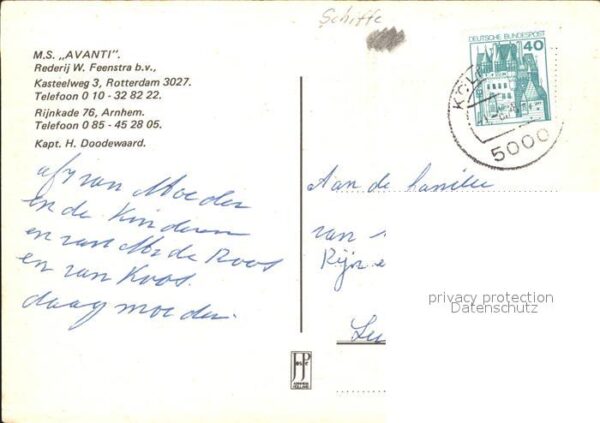 Schiffe
M.S. „AVANTI".
Rederij W. Feenstra b.v.,
Kasteelweg 3, Rotterdam 3027.
Telefoon 0 10 - 32 82 22.
Rijnkade 76, Arnhem.
Telefoon 0 85 - 45 28 05.
Kapt. H. Doodewaard.
van Moeder
en de Kinderen
en van de Roos
en van Koos.
daag moeder.
DEUTSCHE BUNDESPOST
40
5000
Aan de familie
van
Rijn
privacy protection
Datenschutz